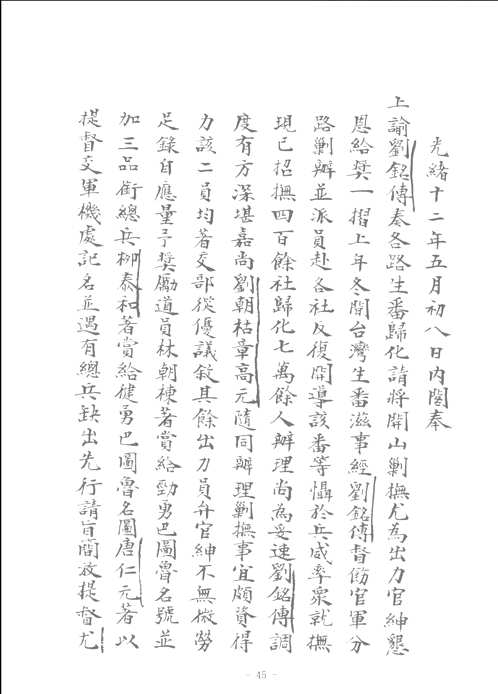 光緒十二年五月初八日內閣奉
上諭劉銘傳奏各路生番歸化請將開山剿撫尤為出力官紳懇
恩給獎一摺上年冬間台灣生番滋事經劉銘傳督飭官軍分
路剿辦並派員赴各社反復開導該番等懾於兵威率眾就撫
現已招撫四百餘社歸化七萬餘人辦理尚為妥速劉銘傳調
度有方深堪嘉尚劉朝祜章高元隨同辦理剿撫事宜頗資得
力該二員均著交部從優議敘其餘出力員弁官紳不無微勞
足錄自應量予獎勵道員林朝棟著賞給勁勇巴圖魯名號並
加三品銜總兵柳泰和著賞給健勇巴圖魯名圖唐仁元著以
提督交軍機處記名並遇有總兵缺出先行請旨簡放提督尤
- 45 -